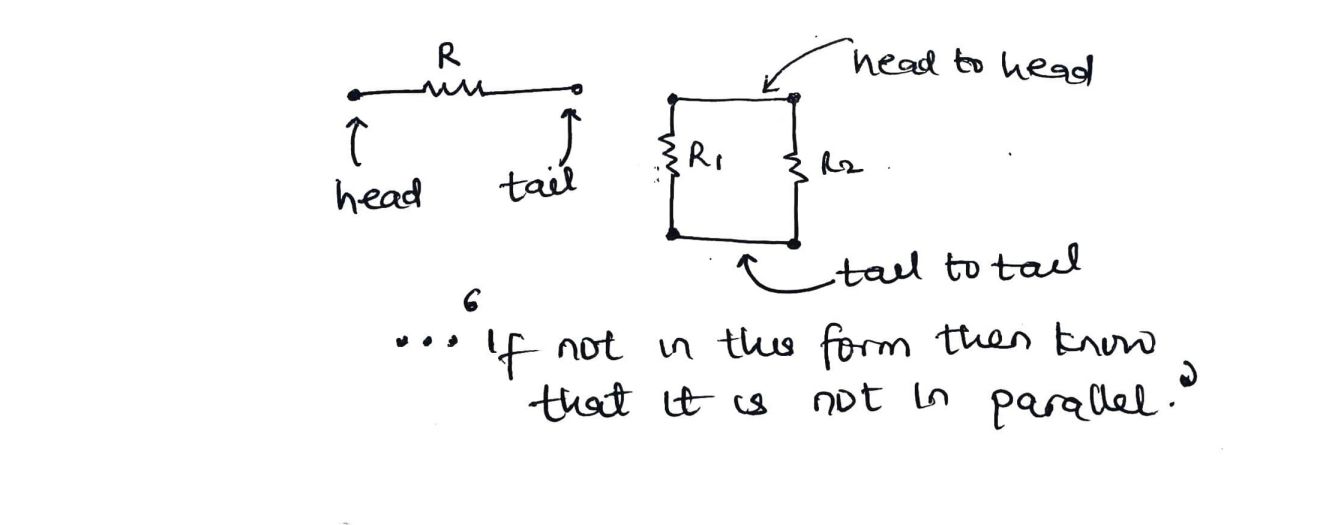 R
head to head
R1
R2
head
tail
tail to tail
...‘If not in this form then know
that it is not in parallel.’